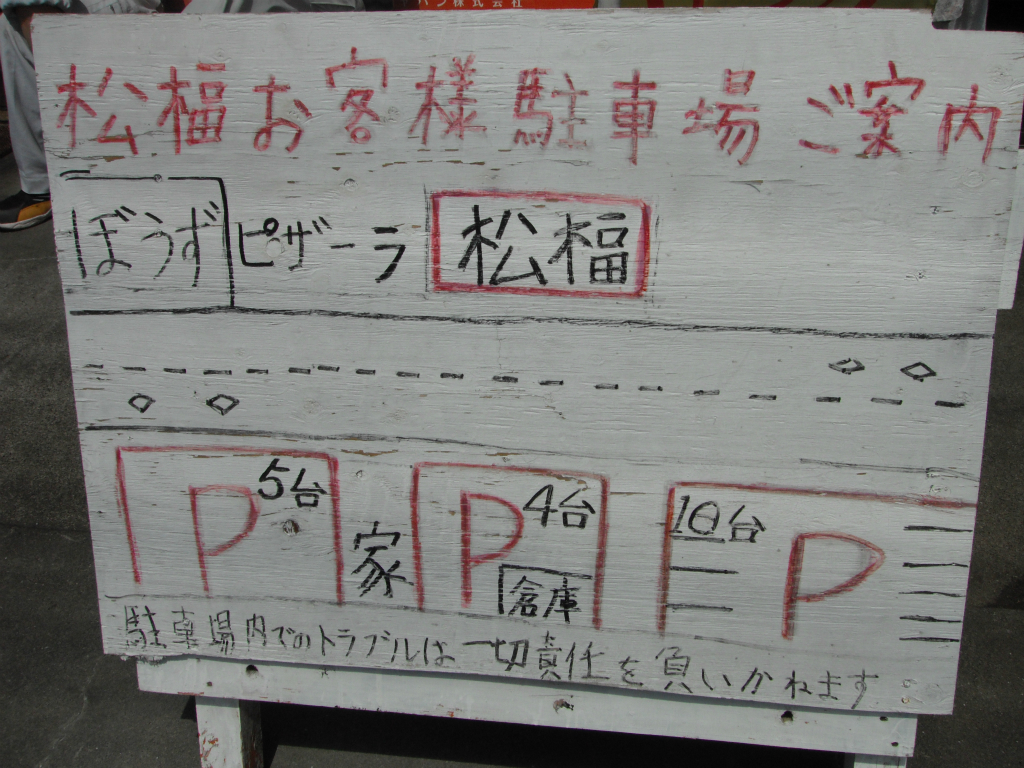 パン株式会社
松福お客様駐車場ご案内
ぼうず ピザーラ 松福
P 5台 家 P 4台 倉庫 10台 P
駐車場内でのトラブルは一切責任を負いかねます